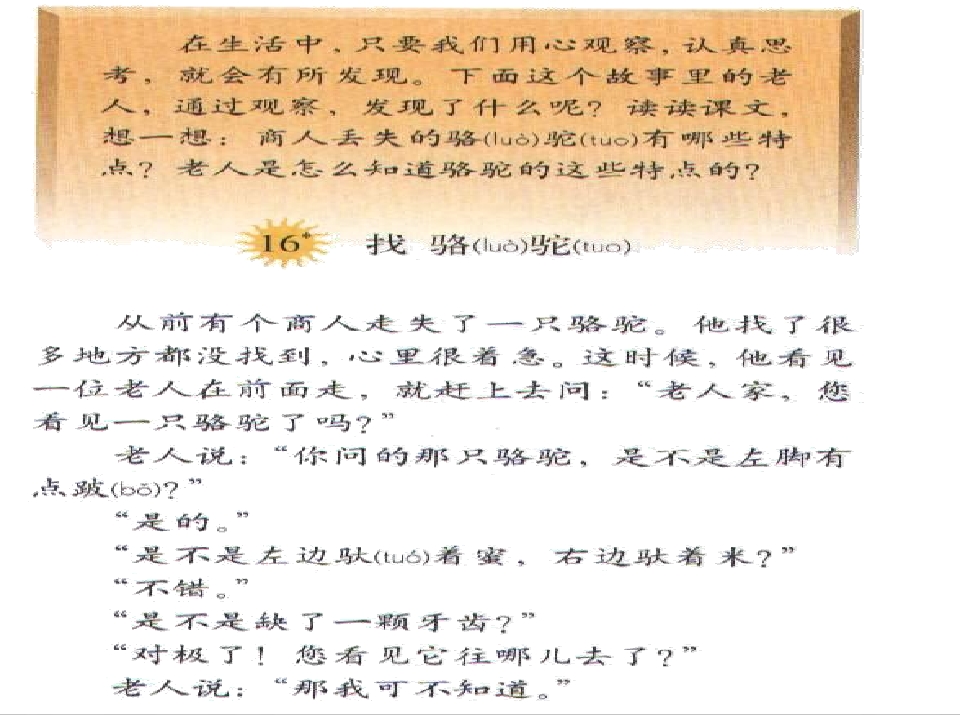 在生活中，只要我们用心观察，认真思
考，就会有所发现。下面这个故事里的老
人，通过观察，发现了什么呢？读读课文，
想一想：商人丢失的骆(luò)驼(tuo)有哪些特
点？老人是怎么知道骆驼的这些特点的？
16* 找 骆(luò)驼(tuo)
从前有个商人走失了一只骆驼。他找了很
多地方都没找到，心里很着急。这时候，他看见
一位老人在前面走，就赶上去问：“老人家，您
看见一只骆驼了吗？”
老人说：“你问的那只骆驼，是不是左脚有
点跛(bǒ)？”
“是的。”
“是不是左边驮(tuó)着蜜，右边驮着米？”
“不错。”
“是不是缺了一颗牙齿？”
“对极了！您看见它往哪儿去了？”
老人说：“那我可不知道。”